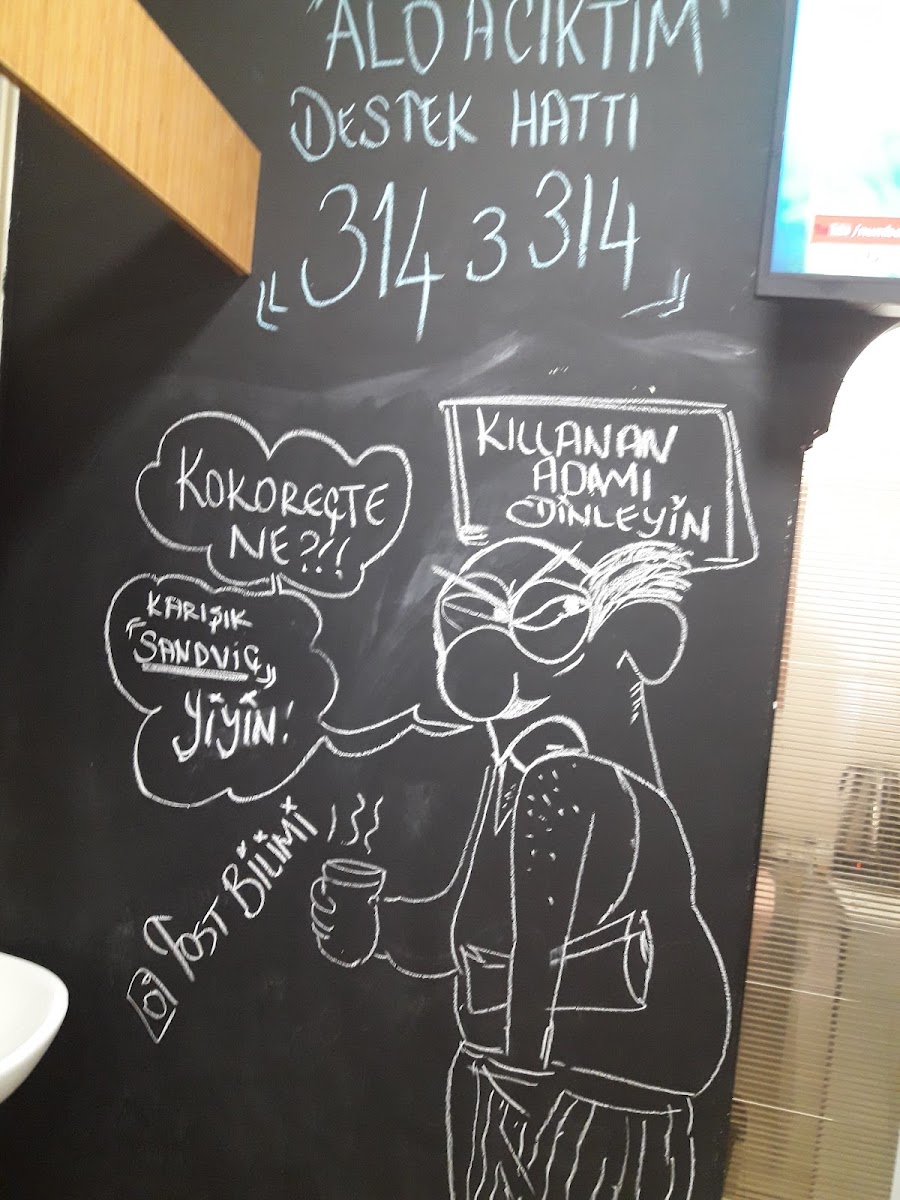 "ALO ACIKTIM"
DESTEK HATTI
"314 3 314"
KILLANAN
ADAMI
DİNLEYİN
KOKOREÇTE
NE?!!
KARIŞIK
"SANDVİÇ"
YİYİN!
TOST BİLİMİ